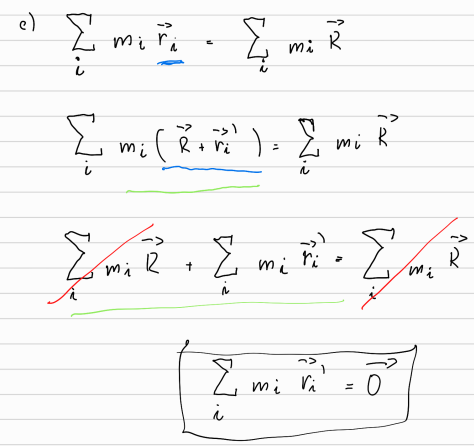 c) ∑_i m_i r⃗_i = ∑_i m_i R⃗
∑_i m_i ( R⃗ + r⃗_i' ) = ∑_i m_i R⃗
∑_i m_i R⃗ + ∑_i m_i r⃗_i' = ∑_i m_i R⃗
∑_i m_i r⃗_i' = 0⃗